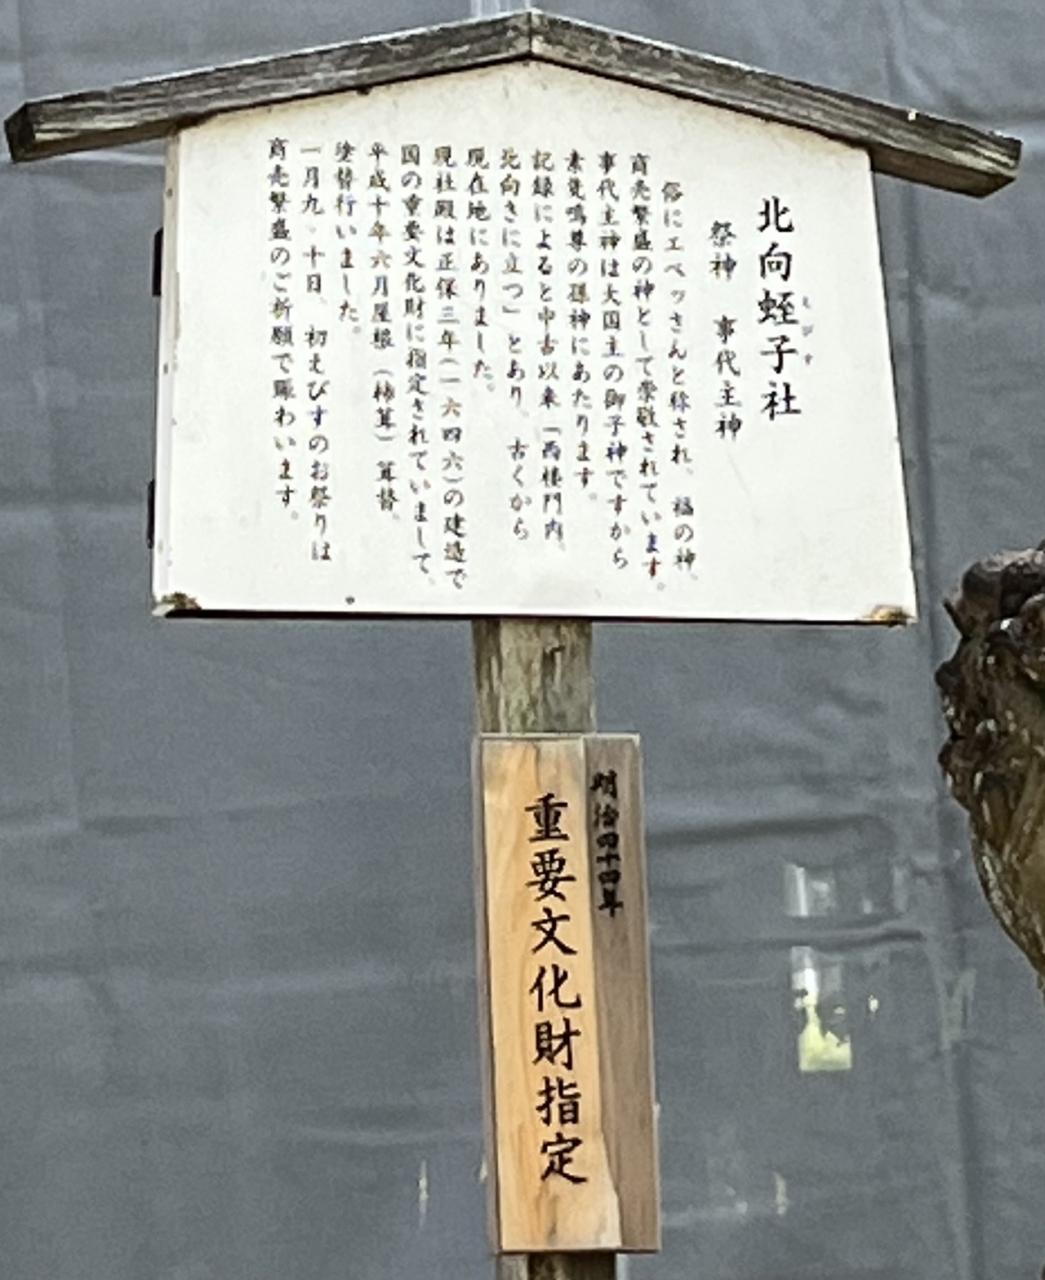 北向蛭子社
えびす
祭神 事代主神
俗にエベッさんと称され、福の神、
商売繁盛の神として崇敬されています。
事代主神は大国主の御子神ですから
素戔嗚尊の孫神にあたります。
記録によると中古以来「西楼門内、
北向きに立つ」とあり、古くから
現在地にありました。
現社殿は正保三年(一六四六)の建造で
国の重要文化財に指定されていまして、
平成十年六月屋根(柿葺)葺替、
塗替行いました。
一月九・十日、初えびすのお祭りは
商売繁盛のご祈願で賑わいます。
明治四十四年
重要文化財指定